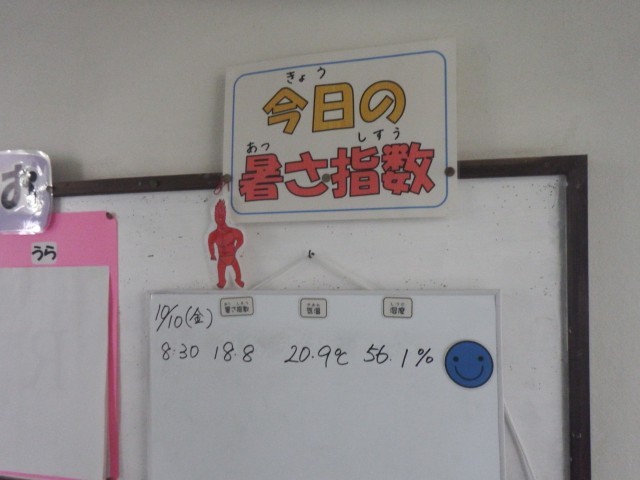 きょう
今日の
あつ しすう
暑さ指数
お
うら
暑さ指数 気温 湿度
10/10(金)
8:30 18.8 20.9℃ 56.1%